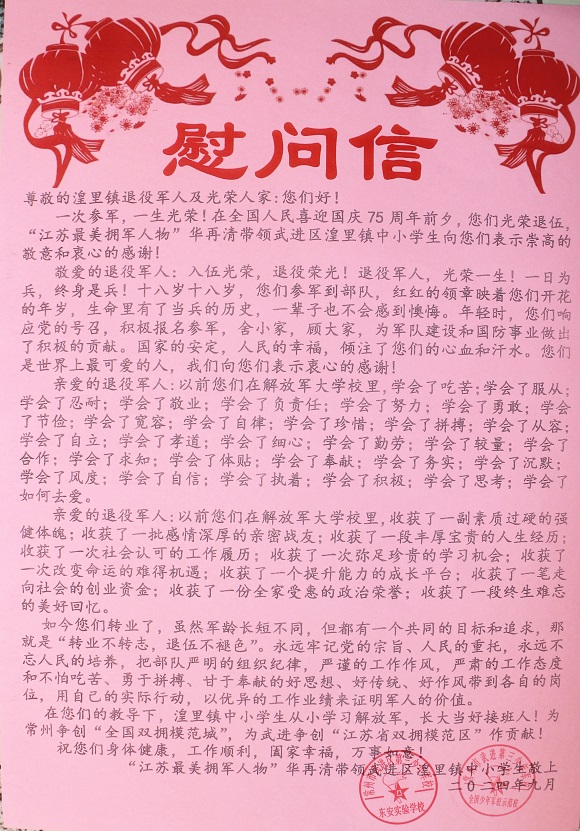 慰问信
尊敬的湟里镇退役军人及光荣人家:您们好!
一次参军,一生光荣!在全国人民喜迎国庆75周年前夕,您们光荣退伍,
“江苏最美拥军人物”华再清带领武进区湟里镇中小学生向您们表示崇高的
敬意和衷心的感谢!
敬爱的退役军人:入伍光荣,退役荣光!退役军人,光荣一生!一日为
兵,终身是兵!十八岁十八岁,您们参军到部队,红红的领章映着您们开花
的年岁,生命里有了当兵的历史,一辈子也不会感到懊悔。年轻时,您们响
应党的号召,积极报名参军,舍小家,顾大家,为军队建设和国防事业做出
了积极的贡献。国家的安定,人民的幸福,倾注了您们的心血和汗水。您们
是世界上最可爱的人,我们向您们表示衷心的感谢!
亲爱的退役军人:以前您们在解放军大学校里,学会了吃苦;学会了服从;
学会了忍耐;学会了敬业;学会了负责任;学会了努力;学会了勇敢;学会
了节俭;学会了宽容;学会了自律;学会了珍惜;学会了拼搏;学会了从容;
学会了自立;学会了孝道;学会了细心;学会了勤劳;学会了较量;学会了
合作;学会了求知;学会了体贴;学会了奉献;学会了务实;学会了沉默;
学会了风度;学会了自信;学会了执着;学会了积极;学会了思考;学会了
如何去爱。
亲爱的退役军人:以前您们在解放军大学校里,收获了一副素质过硬的强
健体魄;收获了一批感情深厚的亲密战友;收获了一段丰厚宝贵的人生经历;
收获了一次社会认可的工作履历;收获了一次弥足珍贵的学习机会;收获了
一次改变命运的难得机遇;收获了一个提升能力的成长平台;收获了一笔走
向社会的创业资金;收获了一份全家受惠的政治荣誉;收获了一段终生难忘
的美好回忆。
如今您们转业了,虽然军龄长短不同,但都有一个共同的目标和追求,那
就是“转业不转志,退伍不褪色”。永远牢记党的宗旨、人民的重托,永远不
忘人民的培养,把部队严明的组织纪律,严谨的工作作风,严肃的工作态度
和不怕吃苦、勇于拼搏、甘于奉献的好思想、好传统、好作风带到各自的岗
位,用自己的实际行动,以优异的工作业绩来证明军人的价值。
在您们的教导下,湟里镇中小学生从小学习解放军,长大当好接班人!为
常州争创“全国双拥模范城”,为武进争创“江苏省双拥模范区”作贡献!
祝您们身体健康,工作顺利,阖家幸福,万事如意!
“江苏最美拥军人物”华再清带领武进区湟里镇中小学生敬上
二〇二四年九月
东安实验学校
全国少年军校示范校